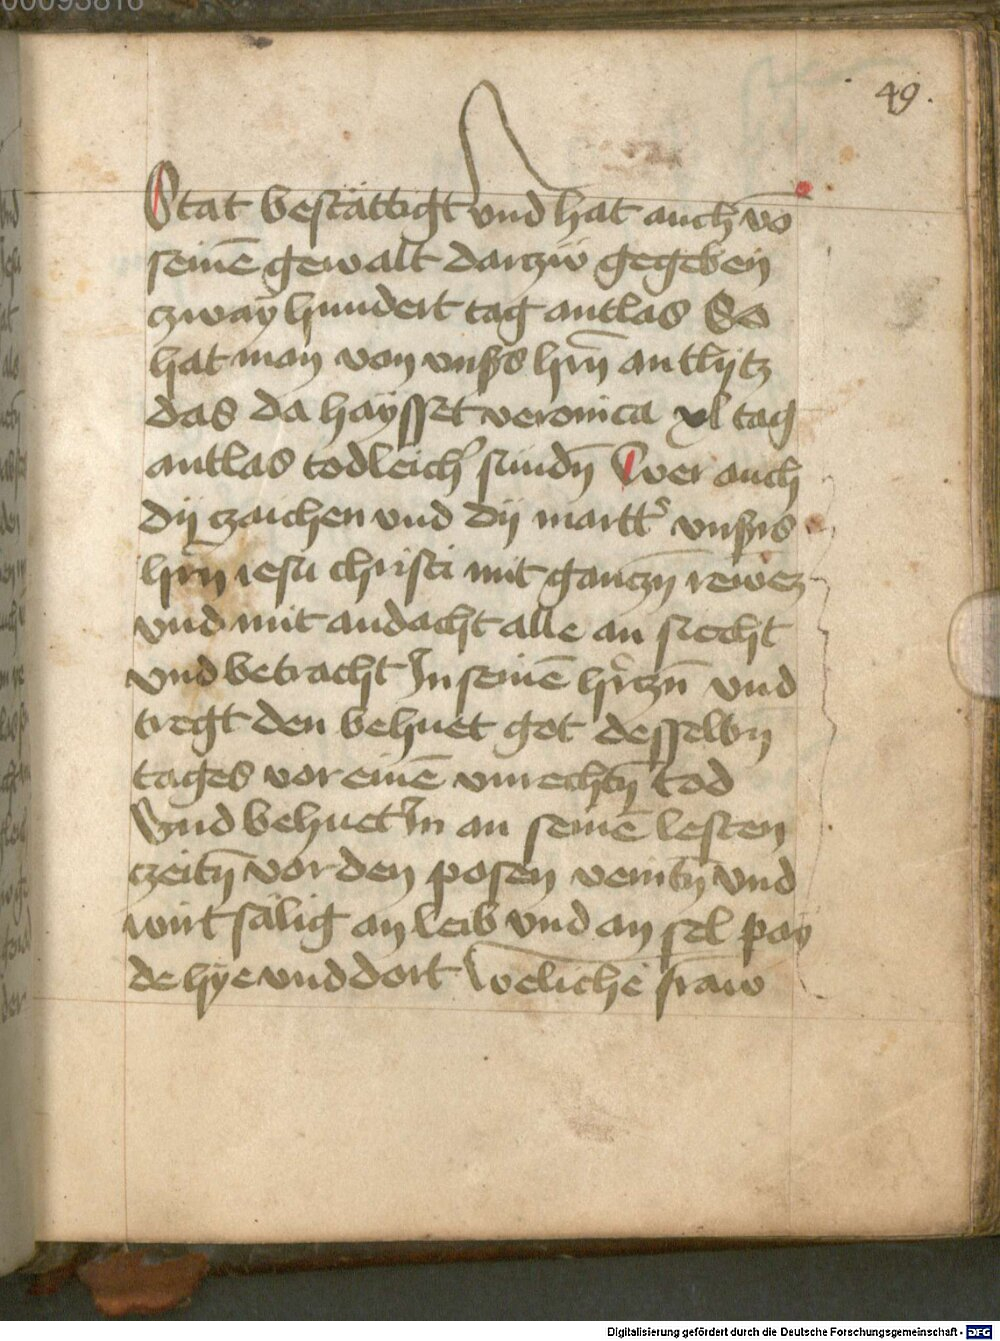 00093816
49.
Stat bestättigt vnd hat auch vō
seinē gewalt darzw gegeben
zway hundert tag antlas So
hat man von vnßs hrn̄ antlytz
das da haysset veronica xl tag
antlas todleich' sundn̄ Wer auch
dij zaichen vnd dij martt' vnßrs
hrn̄ iesu christi mit ganczn̄ rewen
vnd mit andacht alle an siecht
vnd betracht In seinē hrczn̄ vnd
tregt den behuet got desselbn̄
tages vor einē vnrechtn̄ tod
Vnd behuet In an seinē lesten
zeitn̄ vor den posen veintn̄ vnd
wirt sälig an leib vnd an sel pay
de hye vnd dort Weliche fraw
Digitalisierung gefördert durch die Deutsche Forschungsgemeinschaft - DFG